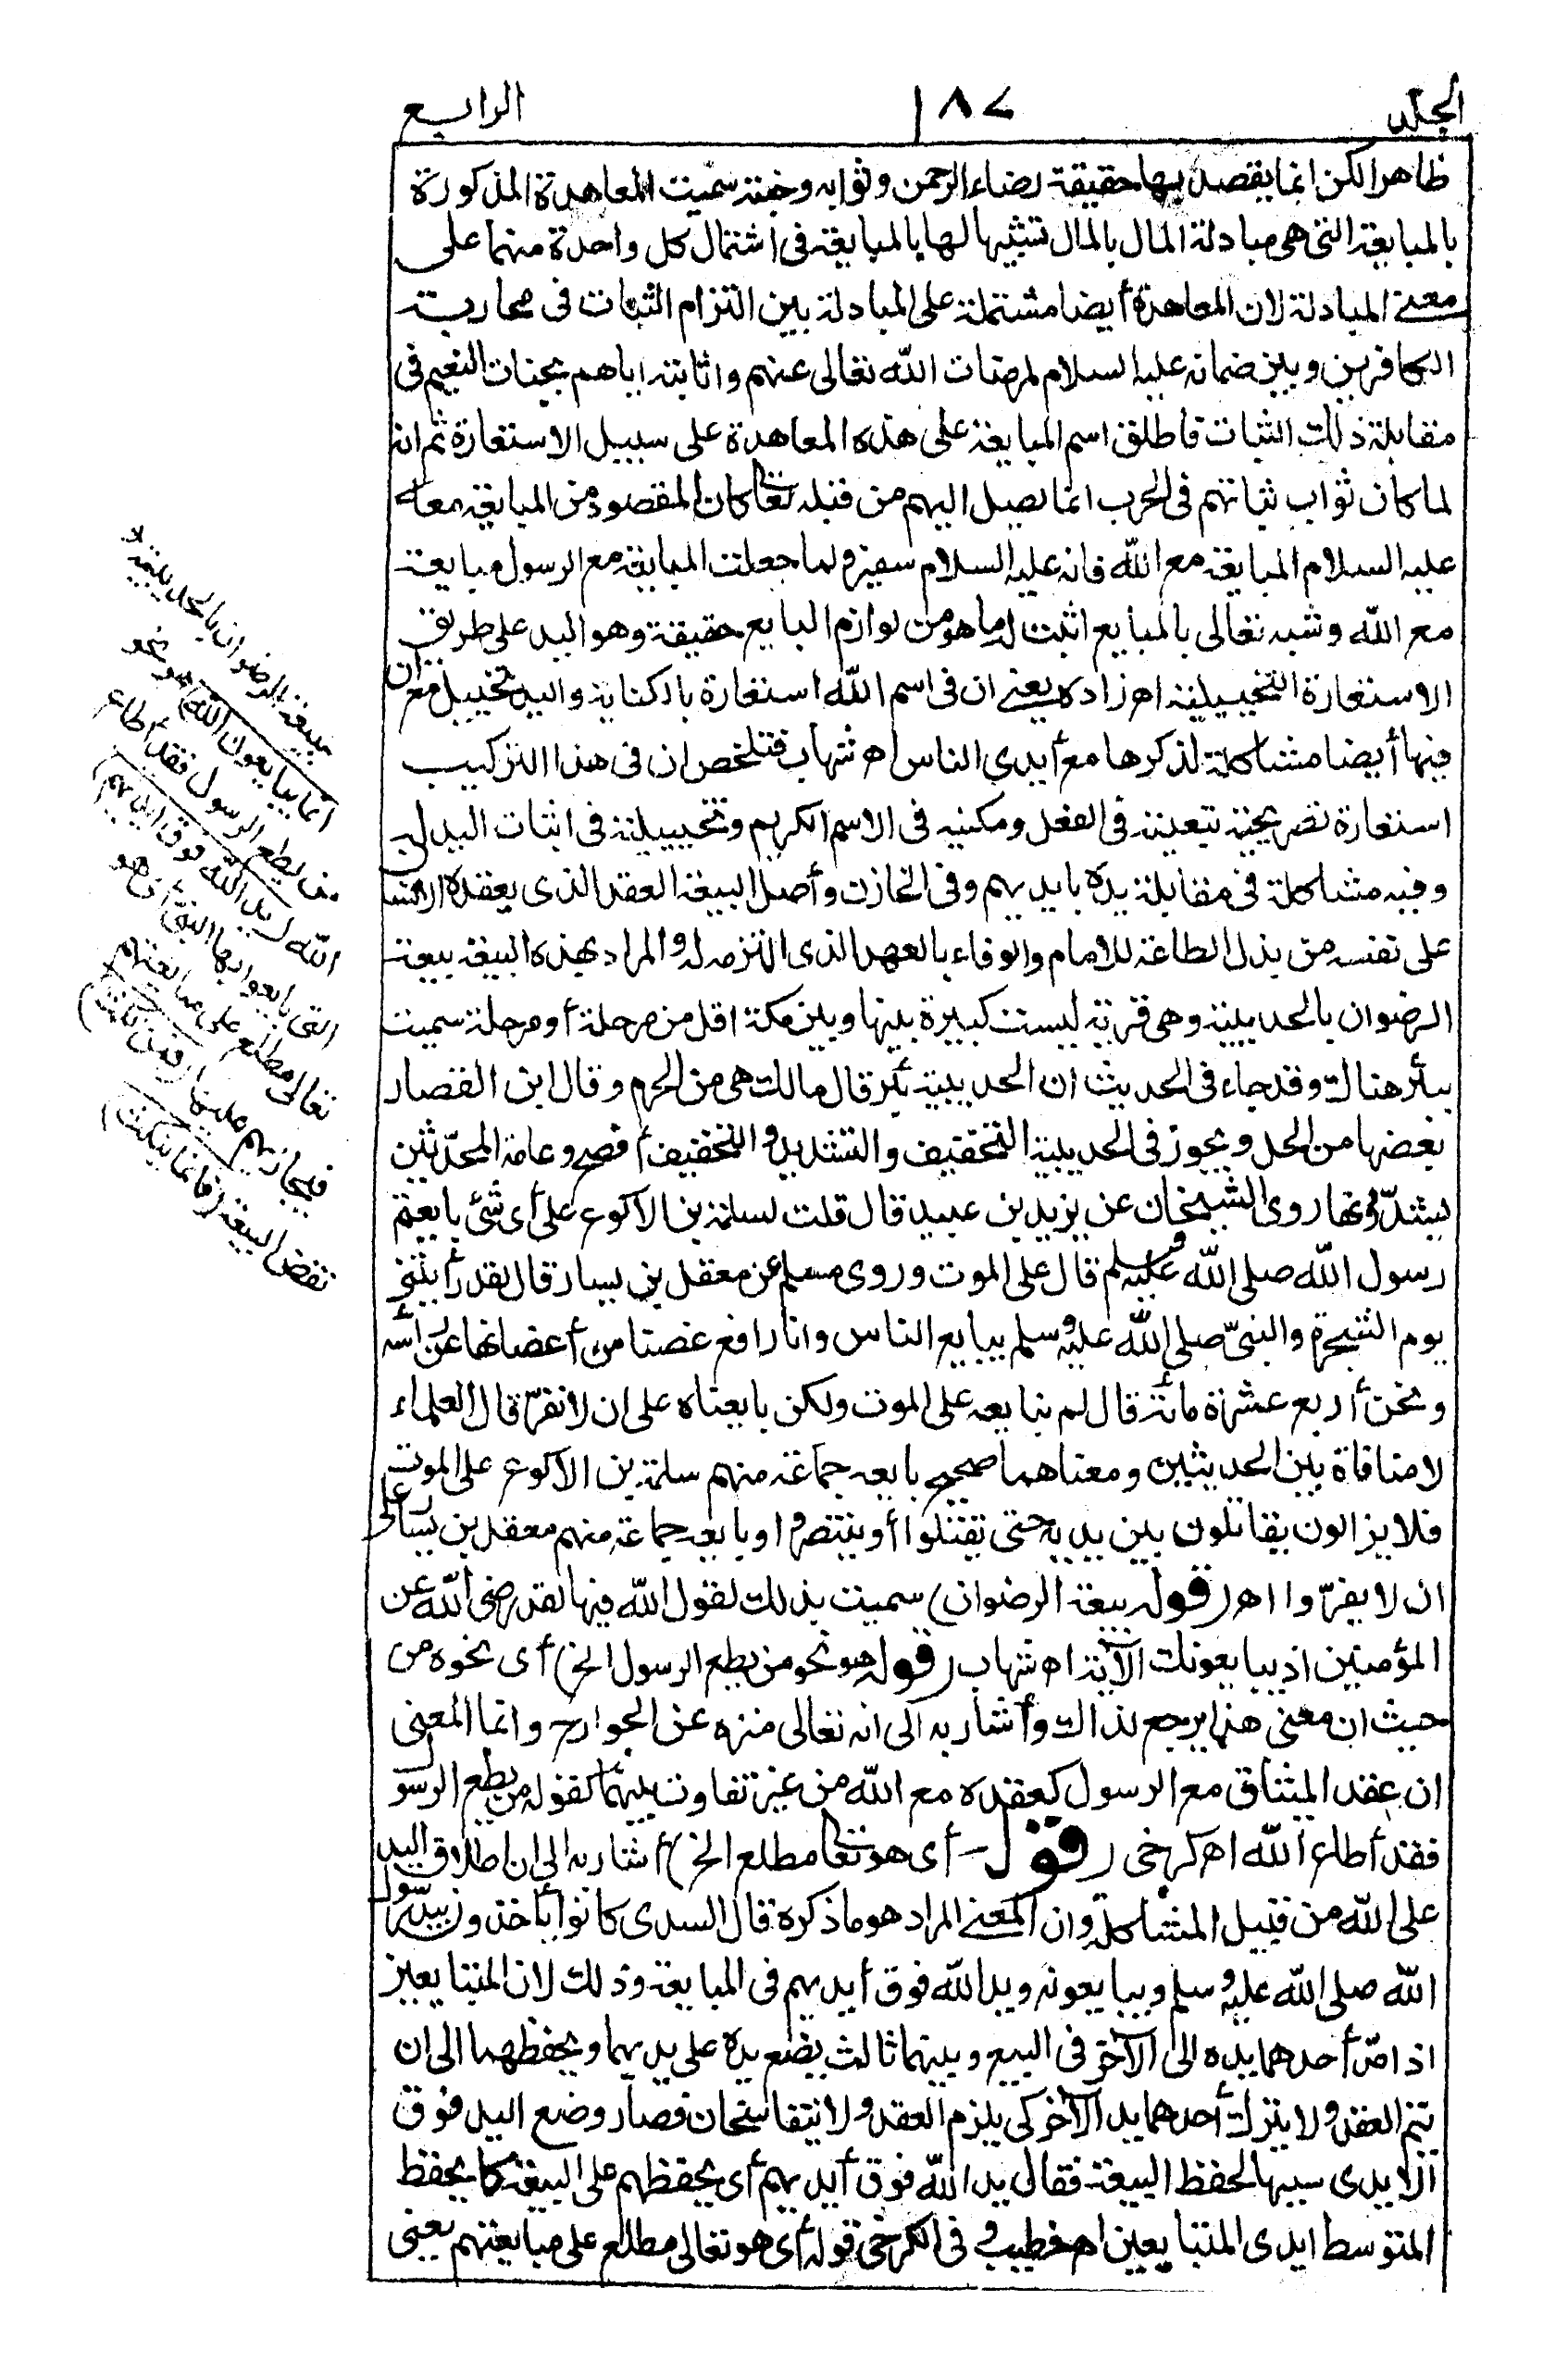 الجلد
١٨٧
الرابع
ظاهرا لكن انما يقصد بها حقيقة رضاء الرحمن وثوابه وجنته سميت المعاهدة المذكورة
بالمبايعة التي هي مبادلة المال بالمال تشبيها لها بالمبايعة في اشتمال كل واحدة منهما على
معنى المبادلة لان المعاهدة أيضا مشتملة على المبادلة بين التزام الثبات في محاربة
الكافرين وبين ضمانه عليه السلام لمرضات الله تعالى عنهم واثابته اياهم بجنات النعيم في
مقابلة ذلك الثبات فاطلق اسم المبايعة على هذه المعاهدة على سبيل الاستعارة ثم انه
لما كان ثواب ثباتهم في الحرب انما يصل اليهم من قبله تعالى كان المقصود من المبايعة معه
عليه السلام المبايعة مع الله فانه عليه السلام سفير ولما جعلت المبايعة مع الرسول مبايعة
مع الله وشبه تعالى بالمبايع اثبت له ما هو من لوازم البايع حقيقة وهو اليد على طريق
الاستعارة التخييلية اه زاده يعني ان في اسم الله استعارة بالكناية واليد تخييل مع ان
فيها أيضا مشاكلة لذكرها مع أيدي الناس اه شهاب فتلخص ان في هذا التركيب
استعارة تصريحية تبعية في الفعل ومكنيه في الاسم الكريم وتخييلية في اثبات اليد له
وفيه مشاكلة في مقابلة يده بايديهم وفي الخازن وأصل البيعة العقد الذي يعقده الانسا
على نفسه من بذل الطاعة للامام والوفاء بالعهد الذي التزمه له والمراد بهذه البيعة بيعة
الرضوان بالحديبية وهي قرية ليست كبيرة بينها وبين مكة اقل من مرحلة أو مرحلة سميت
ببئر هنالك وقد جاء في الحديث ان الحديبية بئر قال مالك هي من الحرم وقال ابن القصار
بعضها من الحل ويجوز في الحديبية التخفيف والتشديد والتخفيف أفصح وعامة المحدّثين
يشدّدونها روى الشيخان عن يزيد بن عبيد قال قلت لسلمة بن الاكوع على أى شئ بايعتم
رسول الله صلى الله عليه وسلم قال على الموت وروى مسلم عن معقل بن يسار قال لقد رأيتني
يوم الشجرة والنبيّ صلى الله عليه وسلم يبايع الناس وانا رافع غصنا من أعضانها عن رأسه
ونحن أربع عشرة مائة قال لم نبايعه على الموت ولكن بايعناه على ان لا نفرّ قال العلماء
لا منافاة بين الحديثين ومعناهما صحيح بايعه جماعة منهم سلمة بن الاكوع على الموت
فلا يزالون يقاتلون بين يديه حتى يقتلوا أو ينتصروا وبايعه جماعة منهم معقل بن يسار على
ان لا يفرّوا اه (قوله بيعة الرضوان) سميت بذلك لقول الله فيها لقد رضى الله عن
المؤمنين اذ يبايعونك الآية اه شهاب (قوله هو نحو من يطع الرسول الخ) أى نحوه من
حيث ان معنى هذا يرجع لذاك وأشار به الى انه تعالى منزه عن الجوارح وانما المعنى
ان عقد الميثاق مع الرسول كعقده مع الله من غير تفاوت بينهما كقوله من يطع الرسول
فقد أطاع الله اه كرخى (قوله أى هو تعالى مطلع الخ) أشار به الى ان اطلاق اليد
على الله من قبيل المشاكلة وان المعنى المراد هو ما ذكره قال السدى كانوا يأخذون بيد رسول
الله صلى الله عليه وسلم ويبايعونه ويد الله فوق أيديهم في المبايعة وذلك لان المتبايعين
اذا مدّ أحدهما يده الى الآخر في البيع وبينهما ثالث يضع يده على يديهما ويحفظهما الى ان
يتم العقد ولا يترك أحدهما يد الآخر كى يلزم العقد ولا يتفاسخان فصار وضع اليد فوق
الايدى سببا لحفظ البيعة فقال يد الله فوق أيديهم أى يحفظهم على البيعة كما يحفظ
المتوسط ايدى المتبايعين اه خطيب وفي الكرخى قوله أى هو تعالى مطلع على مبايعتهم يعنى
بيعة الرضوان بالحديبية
(انما يبايعون الله) هو نحو
من يطع الرسول فقد أطاع
الله (يد الله فوق ايديهم)
التي بايعوا بها النبيّ أى هو
تعالى مطلع على مبايعتهم
فيجازيهم عليها (فمن نكث)
نقض البيعة (فانما ينكث)